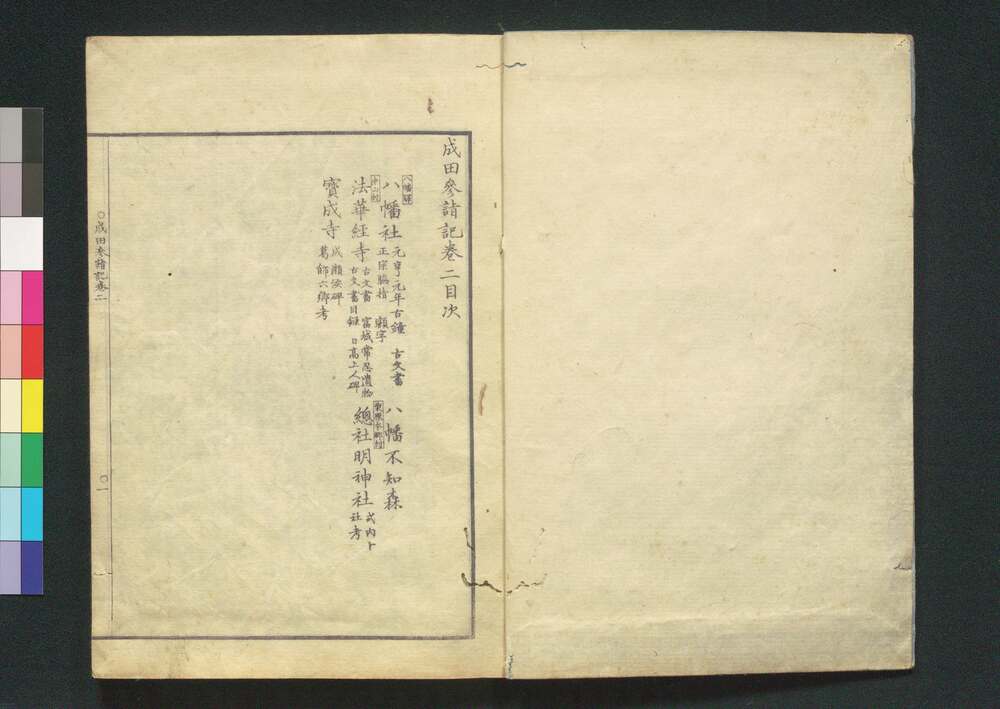 成田參詣記卷二目次
八幡驛
八幡社
元亨元年古鐘 古文書
正宗脇指 額字
八幡不知森
中山村
法華経寺
古文書 富城常忍遺物
古文書目録 日高上人碑
總社明神社
式内ト
社考
寳成寺
成瀬
碑
葛餝六郷考
○成田參詣記卷二
○一